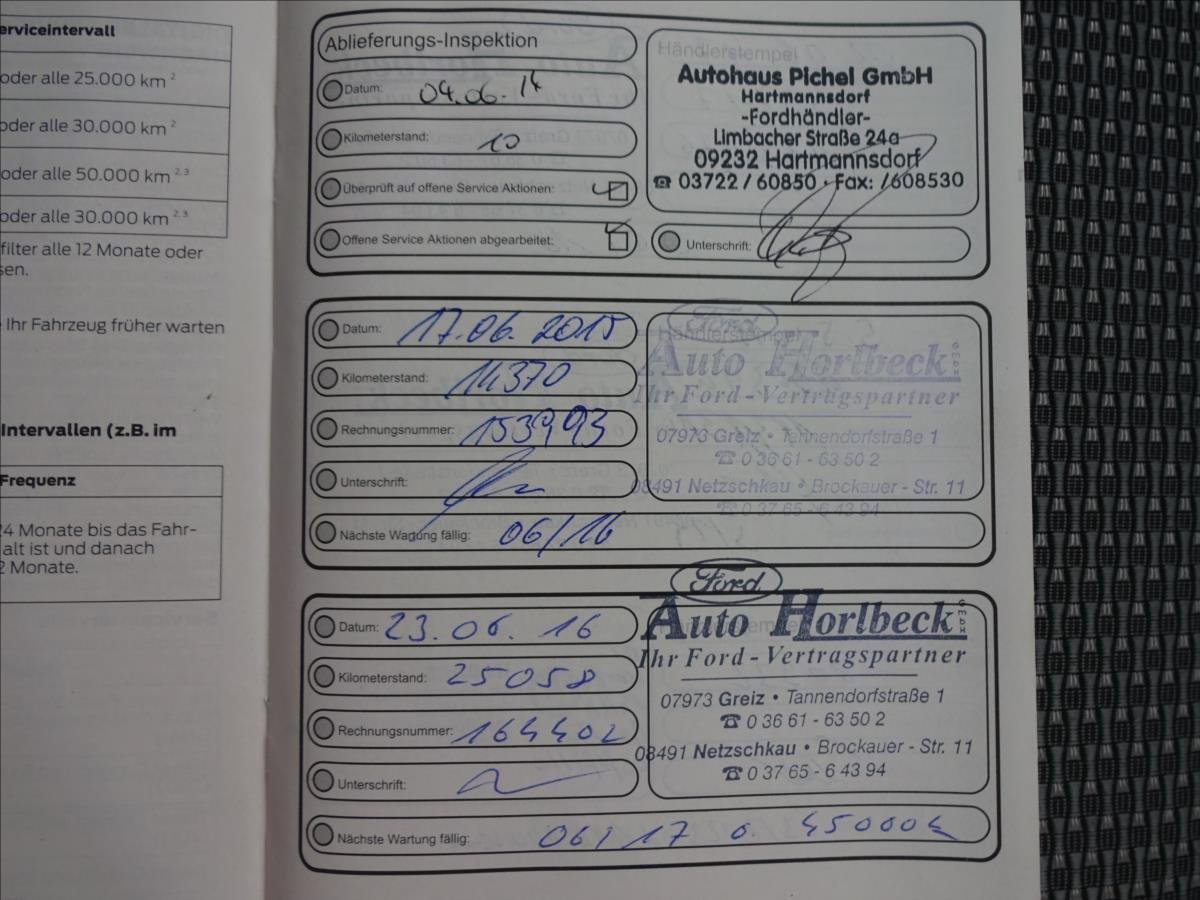 erviceintervall
oder alle 25.000 km ²
oder alle 30.000 km ²
oder alle 50.000 km ²·³
oder alle 30.000 km ²·³
filter alle 12 Monate oder
sen.
Ihr Fahrzeug früher warten
Intervallen (z.B. im
Frequenz
24 Monate bis das Fahr-
alt ist und danach
2 Monate.
Ablieferungs-Inspektion
Datum: 04.06.14
Kilometerstand: 10
Überprüft auf offene Service Aktionen:
Offene Service Aktionen abgearbeitet:
Händlerstempel
Autohaus Pichel GmbH
Hartmannsdorf
-Fordhändler-
Limbacher Straße 24a
09232 Hartmannsdorf
☎ 03722 / 60850 · Fax: /608530
Unterschrift:
Datum: 17.06.2015
Kilometerstand: 14370
Rechnungsnummer: 153993
Unterschrift:
Nächste Wartung fällig: 06/16
Händlerstempel
Ford
Auto Horlbeck GmbH
Ihr Ford - Vertragspartner
07973 Greiz • Tannendorfstraße 1
☎ 0 36 61 - 63 50 2
08491 Netzschkau • Brockauer - Str. 11
☎ 0 37 65 - 6 43 94
Datum: 23.06.16
Kilometerstand: 25058
Rechnungsnummer: 164402
Unterschrift:
Nächste Wartung fällig: 06/17 o. 45000k
Ford
Auto Horlbeck GmbH
Ihr Ford - Vertragspartner
07973 Greiz • Tannendorfstraße 1
☎ 0 36 61 - 63 50 2
08491 Netzschkau • Brockauer - Str. 11
☎ 0 37 65 - 6 43 94